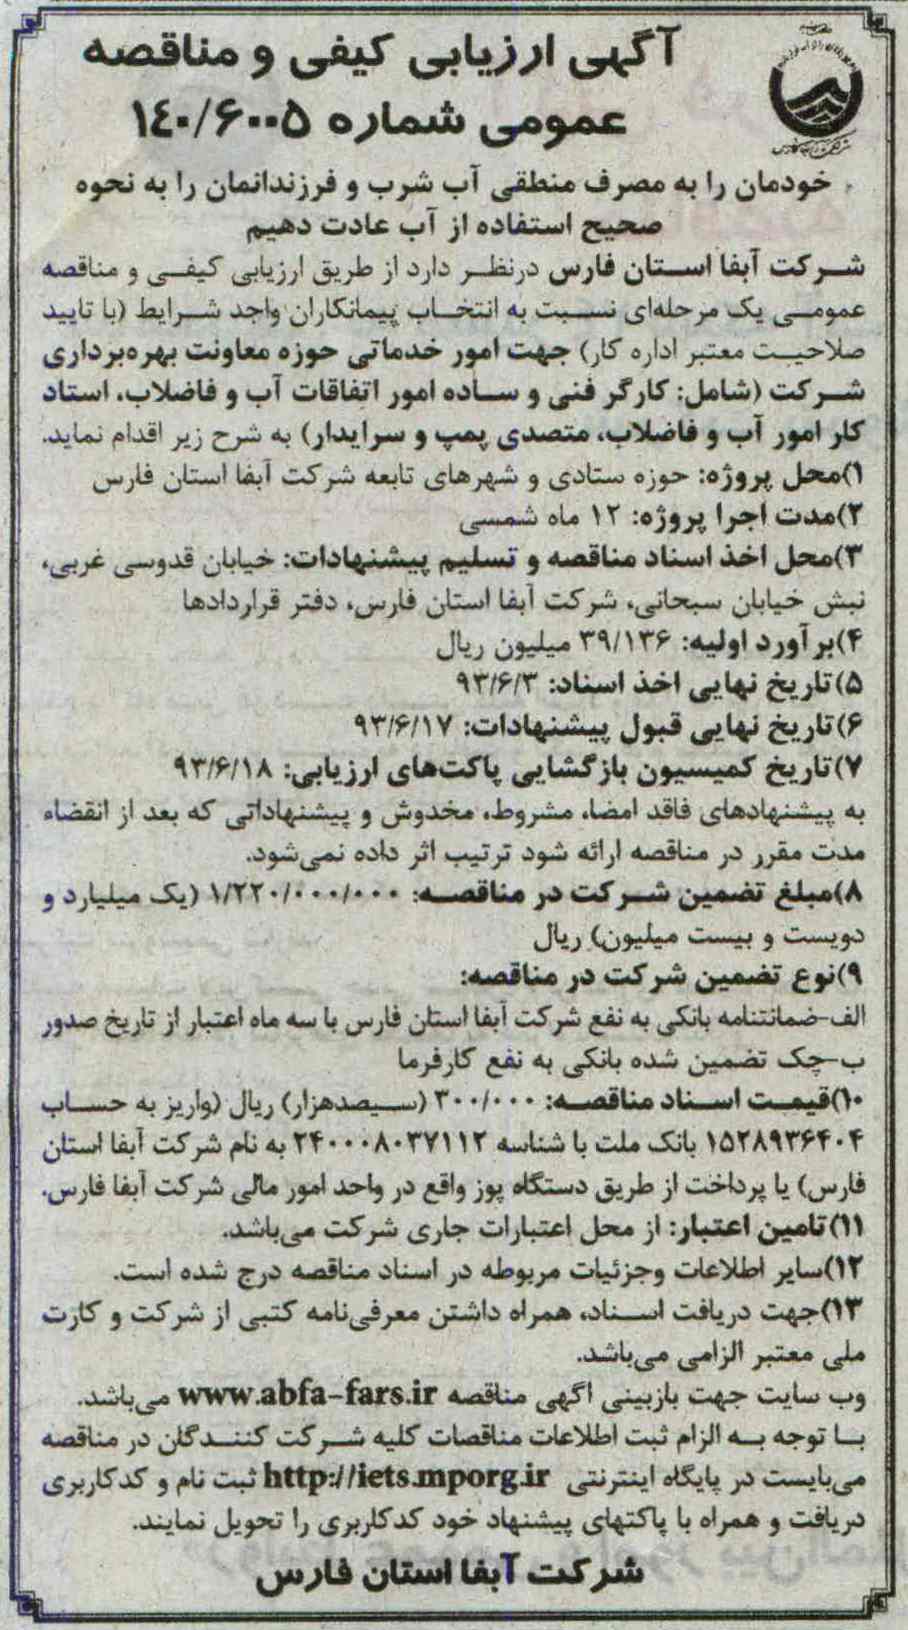 آگهی ارزیابی کیفی و مناقصه
عمومی شماره ۱۴۰/۶۰۰۵
خودمان را به مصرف منطقی آب شرب و فرزندانمان را به نحوه
صحیح استفاده از آب عادت دهیم
شرکت آبفا استان فارس درنظر دارد از طریق ارزیابی کیفی و مناقصه
عمومی یک مرحله‌ای نسبت به انتخاب پیمانکاران واجد شرایط (با تایید
صلاحیت معتبر اداره کار) جهت امور خدماتی حوزه معاونت بهره‌برداری
شرکت (شامل: کارگر فنی و ساده امور اتفاقات آب و فاضلاب، استاد
کار امور آب و فاضلاب، متصدی پمپ و سرایدار) به شرح زیر اقدام نماید.
۱)محل پروژه: حوزه ستادی و شهرهای تابعه شرکت آبفا استان فارس
۲)مدت اجرا پروژه: ۱۲ ماه شمسی
۳)محل اخذ اسناد مناقصه و تسلیم پیشنهادات: خیابان قدوسی غربی،
نبش خیابان سبحانی، شرکت آبفا استان فارس، دفتر قراردادها
۴)برآورد اولیه: ۳۹/۱۳۶ میلیون ریال
۵)تاریخ نهایی اخذ اسناد: ۹۳/۶/۳
۶)تاریخ نهایی قبول پیشنهادات: ۹۳/۶/۱۷
۷)تاریخ کمیسیون بازگشایی پاکت‌های ارزیابی: ۹۳/۶/۱۸
به پیشنهادهای فاقد امضا، مشروط، مخدوش و پیشنهاداتی که بعد از انقضاء
مدت مقرر در مناقصه ارائه شود ترتیب اثر داده نمی‌شود.
۸)مبلغ تضمین شرکت در مناقصه: ۱/۲۲۰/۰۰۰/۰۰۰ (یک میلیارد و
دویست و بیست میلیون) ریال
۹)نوع تضمین شرکت در مناقصه:
الف-ضمانتنامه بانکی به نفع شرکت آبفا استان فارس با سه ماه اعتبار از تاریخ صدور
ب-چک تضمین شده بانکی به نفع کارفرما
۱۰)قیمت اسناد مناقصه: ۳۰۰/۰۰۰ (سیصدهزار) ریال (واریز به حساب
۱۵۲۸۹۳۶۴۰۴ بانک ملت با شناسه ۲۴۰۰۰۸۰۳۷۱۱۲ به نام شرکت آبفا استان
فارس) یا پرداخت از طریق دستگاه پوز واقع در واحد امور مالی شرکت آبفا فارس.
۱۱)تامین اعتبار: از محل اعتبارات جاری شرکت می‌باشد.
۱۲)سایر اطلاعات وجزئیات مربوطه در اسناد مناقصه درج شده است.
۱۳)جهت دریافت اسناد، همراه داشتن معرفی‌نامه کتبی از شرکت و کارت
ملی معتبر الزامی می‌باشد.
وب سایت جهت بازبینی اگهی مناقصه www.abfa-fars.ir می‌باشد.
با توجه به الزام ثبت اطلاعات مناقصات کلیه شرکت کنندگان در مناقصه
می‌بایست در پایگاه اینترنتی http://iets.mporg.ir ثبت نام و کدکاربری
دریافت و همراه با پاکتهای پیشنهاد خود کدکاربری را تحویل نمایند.
شرکت آبفا استان فارس